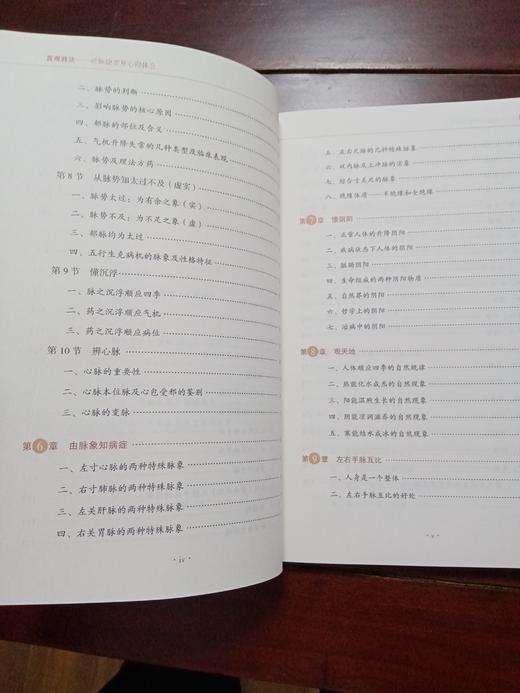 直观脉法
二、脉势的判断
三、影响脉势的核心原因
四、郁脉的部位及含义
五、气机升降失常的几种类型及临床表现
六、脉势及理法方药
第 8 节 从脉势知太过不及（虚实）
一、脉势太过：为有余之象（实）
二、脉势不及：为不足之象（虚）
三、郁脉均为太过
四、五行生克病机的脉象及性格特征
第 9 节 懂沉浮
一、脉之沉浮顺应四季
二、药之沉浮顺应气机
三、药之沉浮顺应病位
第 10 节 辨心脉
一、心脉的重要性
二、心脉本位脉及心包受邪的鉴别
三、心脉的变脉
第 6 章 由脉象知病症
一、左寸心脉的两种特殊脉象
二、右寸肺脉的两种特殊脉象
三、左关肝脉的两种特殊脉象
四、右关胃脉的两种特殊脉象
· iv ·
五、左右尺脉的几种特殊脉象
六、双内脉及上冲脉的实象
七、结合寸关尺的脉象
八、绝缘体质——半绝缘和全绝缘
第 7 章 懂阴阳
一、正常人体的升降阴阳
二、疾病状态下人体的阴阳
三、脏腑阴阳
四、生命组成的两种阴阳物质
五、自然界的阴阳
六、哲学上的阴阳
七、治病中的阴阳
第 8 章 观天地
一、人体顺应四季的自然规律
二、热能化水成炁的自然现象
三、阳能温煦生长的自然现象
四、阴能凉润滋养的自然现象
五、寒能结水成冰的自然现象
第 9 章 左右手脉互比
一、人身是一个整体
二、左右手脉互比的好处
· v ·